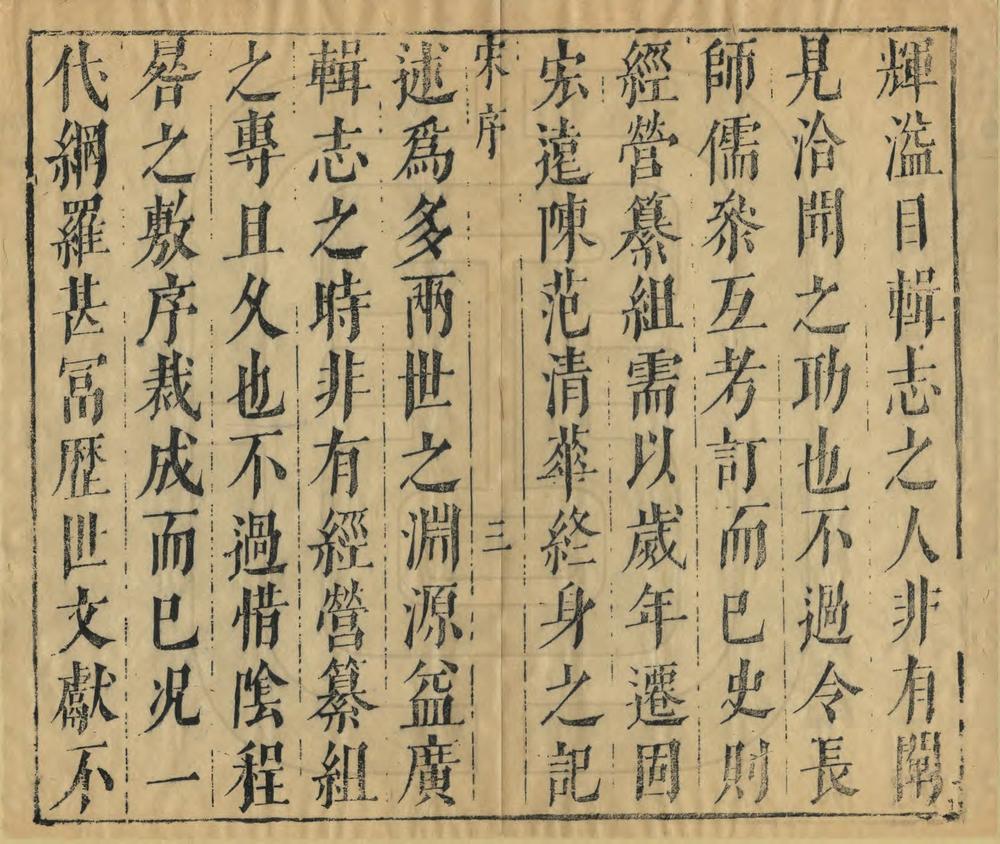 輝溢目輯志之人非有闡
見洽聞之功也不過令長
師儒叅互考訂而已史則
經營纂組需以歲年遷固
宏遠陳范清華終身之記
宋序
三
述爲多兩世之淵源益廣
輯志之時非有經營纂組
之專且久也不過惜陰程
晷之敷序裁成而已况一
代網羅甚冨歷世文獻不